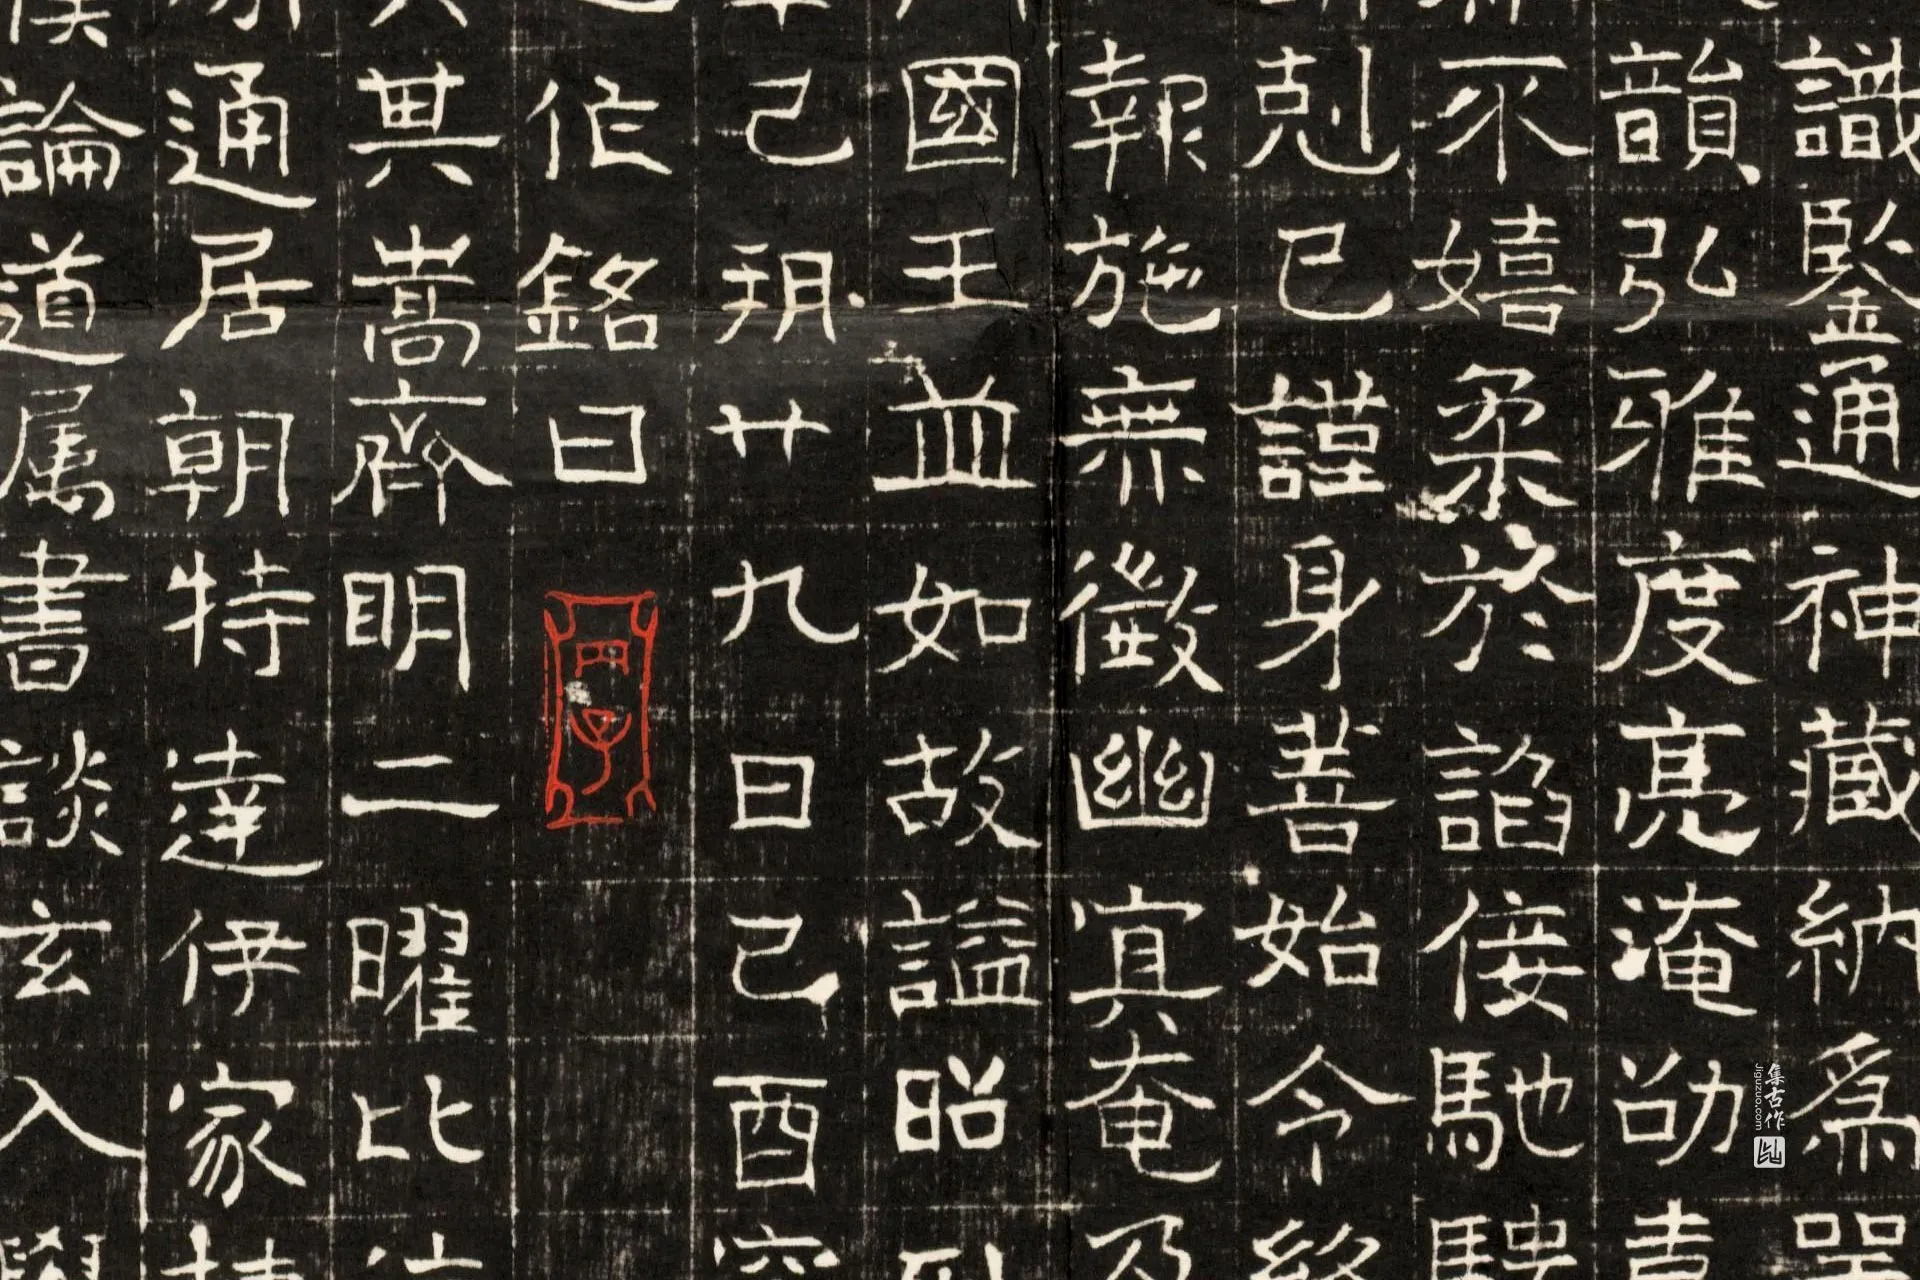 識鋻通神藏納爲
韻弘雅度亮淹劭
不嬉柔於諂佞馳騁
剋己謹身善始令終
報施無徵幽冥奄乃
國王並如故謚昭
己朔廿九日己酉
作銘曰
其嵩齊明二曜比
通居朝特達伊家
論道属書談玄入
集古作
jiguzuo.com